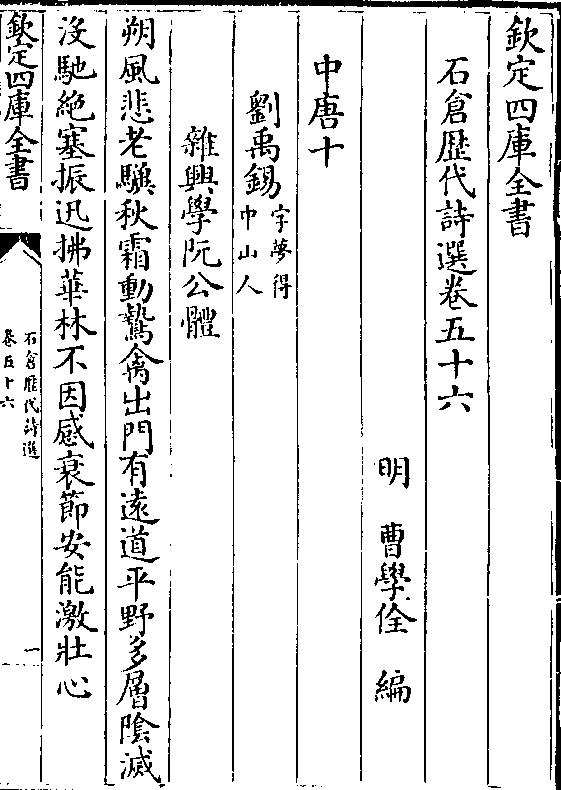 欽定四庫全書
石倉歴代詩選卷五十六
明 曹學佺 編
中唐十
劉禹錫字夢得
中山人
雜興學阮公體
朔風悲老驥秋霜動鷙禽出門有遠道平野多層陰滅
沒馳絶塞振迅拂華林不因感衰節安能激壯心
欽定四庫全書
石倉歴代詩選
卷五十六
一